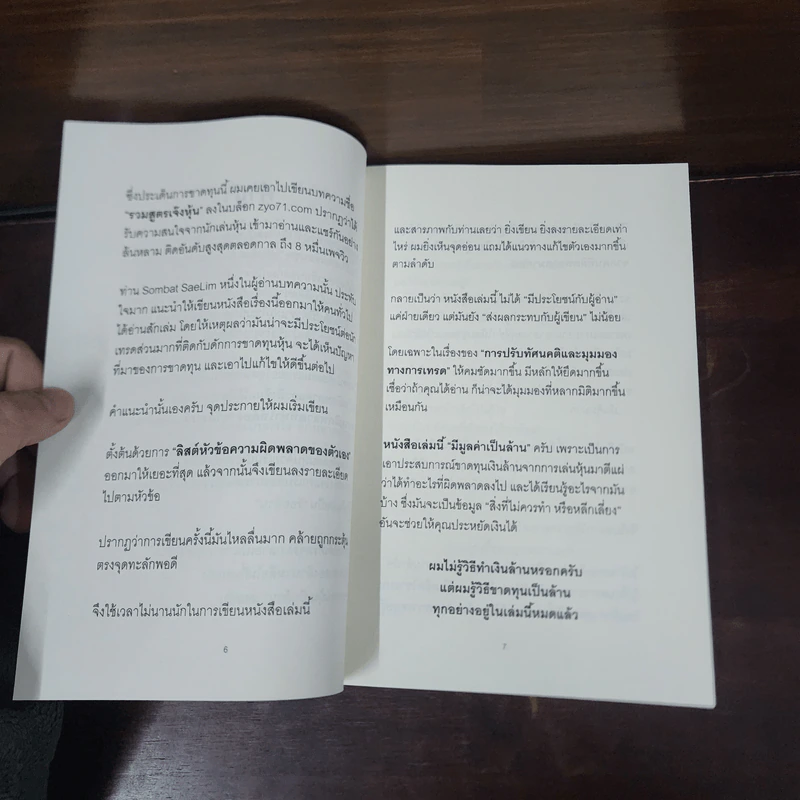 ซึ่งประเด็นการขาดทุนนี้ ผมเคยเอาไปเขียนบทความชื่อ
"รวมสูตรเจ๊งหุ้น" ลงในบล็อก zyo71.com ปรากฏว่าได้
รับความสนใจจากนักเล่นหุ้น เข้ามาอ่านและแชร์กันอย่าง
ล้นหลาม ติดอันดับสูงสุดตลอดกาล ถึง 8 หมื่นเพจวิว
ท่าน Sombat SaeLim หนึ่งในผู้อ่านบทความนั้น ประทับ
ใจมาก แนะนำให้เขียนหนังสือเรื่องนี้ออกมาให้คนทั่วไป
ได้อ่านสักเล่ม โดยให้เหตุผลว่ามันน่าจะมีประโยชน์ต่อนัก
เทรดส่วนมากที่ติดกับดักการขาดทุนหุ้น จะได้เห็นปัญหา
ที่มาของการขาดทุน และเอาไปแก้ไขให้ดีขึ้นต่อไป
คำแนะนำนั้นเองครับ จุดประกายให้ผมเริ่มเขียน
ตั้งต้นด้วยการ "ลิสต์หัวข้อความผิดพลาดของตัวเอง"
ออกมาให้เยอะที่สุด แล้วจากนั้นจึงเขียนลงรายละเอียด
ไปตามหัวข้อ
ปรากฏว่าการเขียนครั้งนี้มันไหลลื่นมาก คล้ายถูกกระตุ้น
ตรงจุดทะลักพอดี
จึงใช้เวลาไม่นานนักในการเขียนหนังสือเล่มนี้
6
และสารภาพกับท่านเลยว่า ยิ่งเขียน ยิ่งลงรายละเอียดเท่า
ไหร่ ผมยิ่งเห็นจุดอ่อน แถมได้แนวทางแก้ไขตัวเองมากขึ้น
ตามลำดับ
กลายเป็นว่า หนังสือเล่มนี้ ไม่ได้ "มีประโยชน์กับผู้อ่าน"
แค่ฝ่ายเดียว แต่มันยัง "ส่งผลกระทบกับผู้เขียน" ไม่น้อย
โดยเฉพาะในเรื่องของ "การปรับทัศนคติและมุมมอง
ทางการเทรด" ให้คมชัดมากขึ้น มีหลักให้ยึดมากขึ้น
เชื่อว่าถ้าคุณได้อ่าน ก็น่าจะได้มุมมองที่หลากมิติมากขึ้น
เหมือนกัน
หนังสือเล่มนี้ "มีมูลค่าเป็นล้าน" ครับ เพราะเป็นการ
เอาประสบการณ์ขาดทุนเงินล้านจากการเล่นหุ้นมาตีแผ่
ว่าได้ทำอะไรที่ผิดพลาดลงไป และได้เรียนรู้อะไรจากมัน
บ้าง ซึ่งมันจะเป็นข้อมูล "สิ่งที่ไม่ควรทำ หรือหลีกเลี่ยง"
อันจะช่วยให้คุณประหยัดเงินได้
ผมไม่รู้วิธีทำเงินล้านหรอกครับ
แต่ผมรู้วิธีขาดทุนเป็นล้าน
ทุกอย่างอยู่ในเล่มนี้หมดแล้ว
7